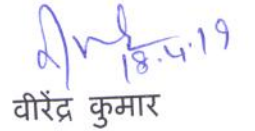 18.4.19
वीरेंद्र कुमार